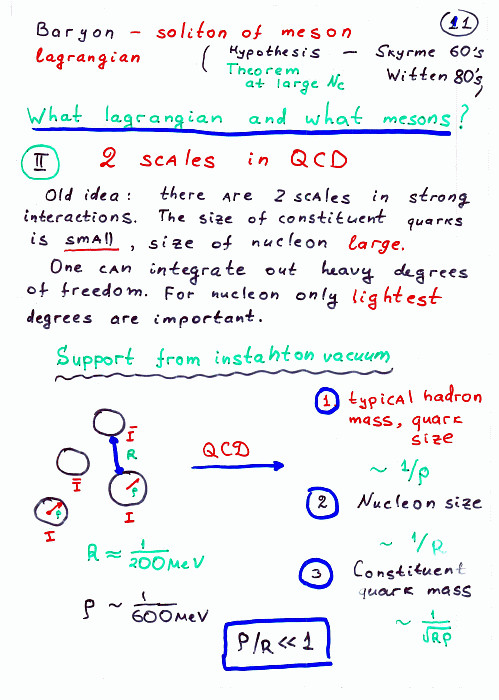 11
Baryon – soliton of meson
lagrangian
( Hypothesis – Skyrme 60's
Theorem at large Nc Witten 80's )
What lagrangian and what mesons?
II 2 scales in QCD
Old idea: there are 2 scales in strong
interactions. The size of constituent quarks
is small, size of nucleon large.
One can integrate out heavy degrees
of freedom. For nucleon only lightest
degrees are important.
Support from instanton vacuum
Ī
R
Ī
ρ
I
ρ
I
QCD
R ≈ 1/200 MeV
ρ ~ 1/600 MeV
ρ/R << 1
1 typical hadron
mass, quark
size
~ 1/ρ
2 Nucleon size
~ 1/R
3 Constituent
quark mass
~ 1/√Rρ